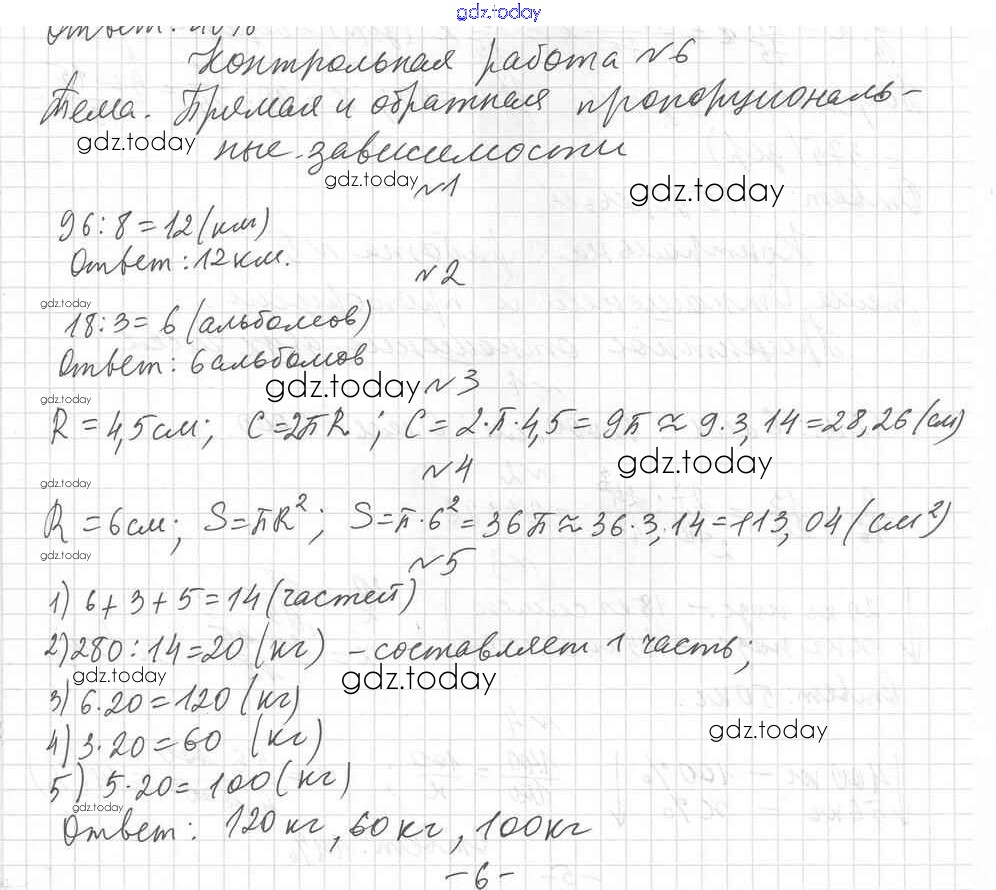 gdz.today
Ответ: 40%
Контрольная работа №6
Тема. Прямая и обратная пропорциональ-
gdz.today
ные зависимости
gdz.today
№1
gdz.today
96:8=12(км)
Ответ:12км.
№2
gdz.today
18:3=6(альбомов)
Ответ: 6 альбомов
gdz.today
№3
gdz.today
R=4,5см; C=2πR; C=2·π·4,5=9π≈9·3,14=28,26(см)
№4
gdz.today
gdz.today
R=6см; S=πR²; S=π·6²=36π≈36·3,14=113,04(см²)
gdz.today
№5
1) 6+3+5=14(частей)
2)280:14=20(кг) -составляет 1 часть;
gdz.today
gdz.today
3) 6·20=120(кг)
gdz.today
4) 3·20=60 (кг)
5) 5·20=100(кг)
gdz.today
Ответ: 120кг, 60кг, 100кг
-6-